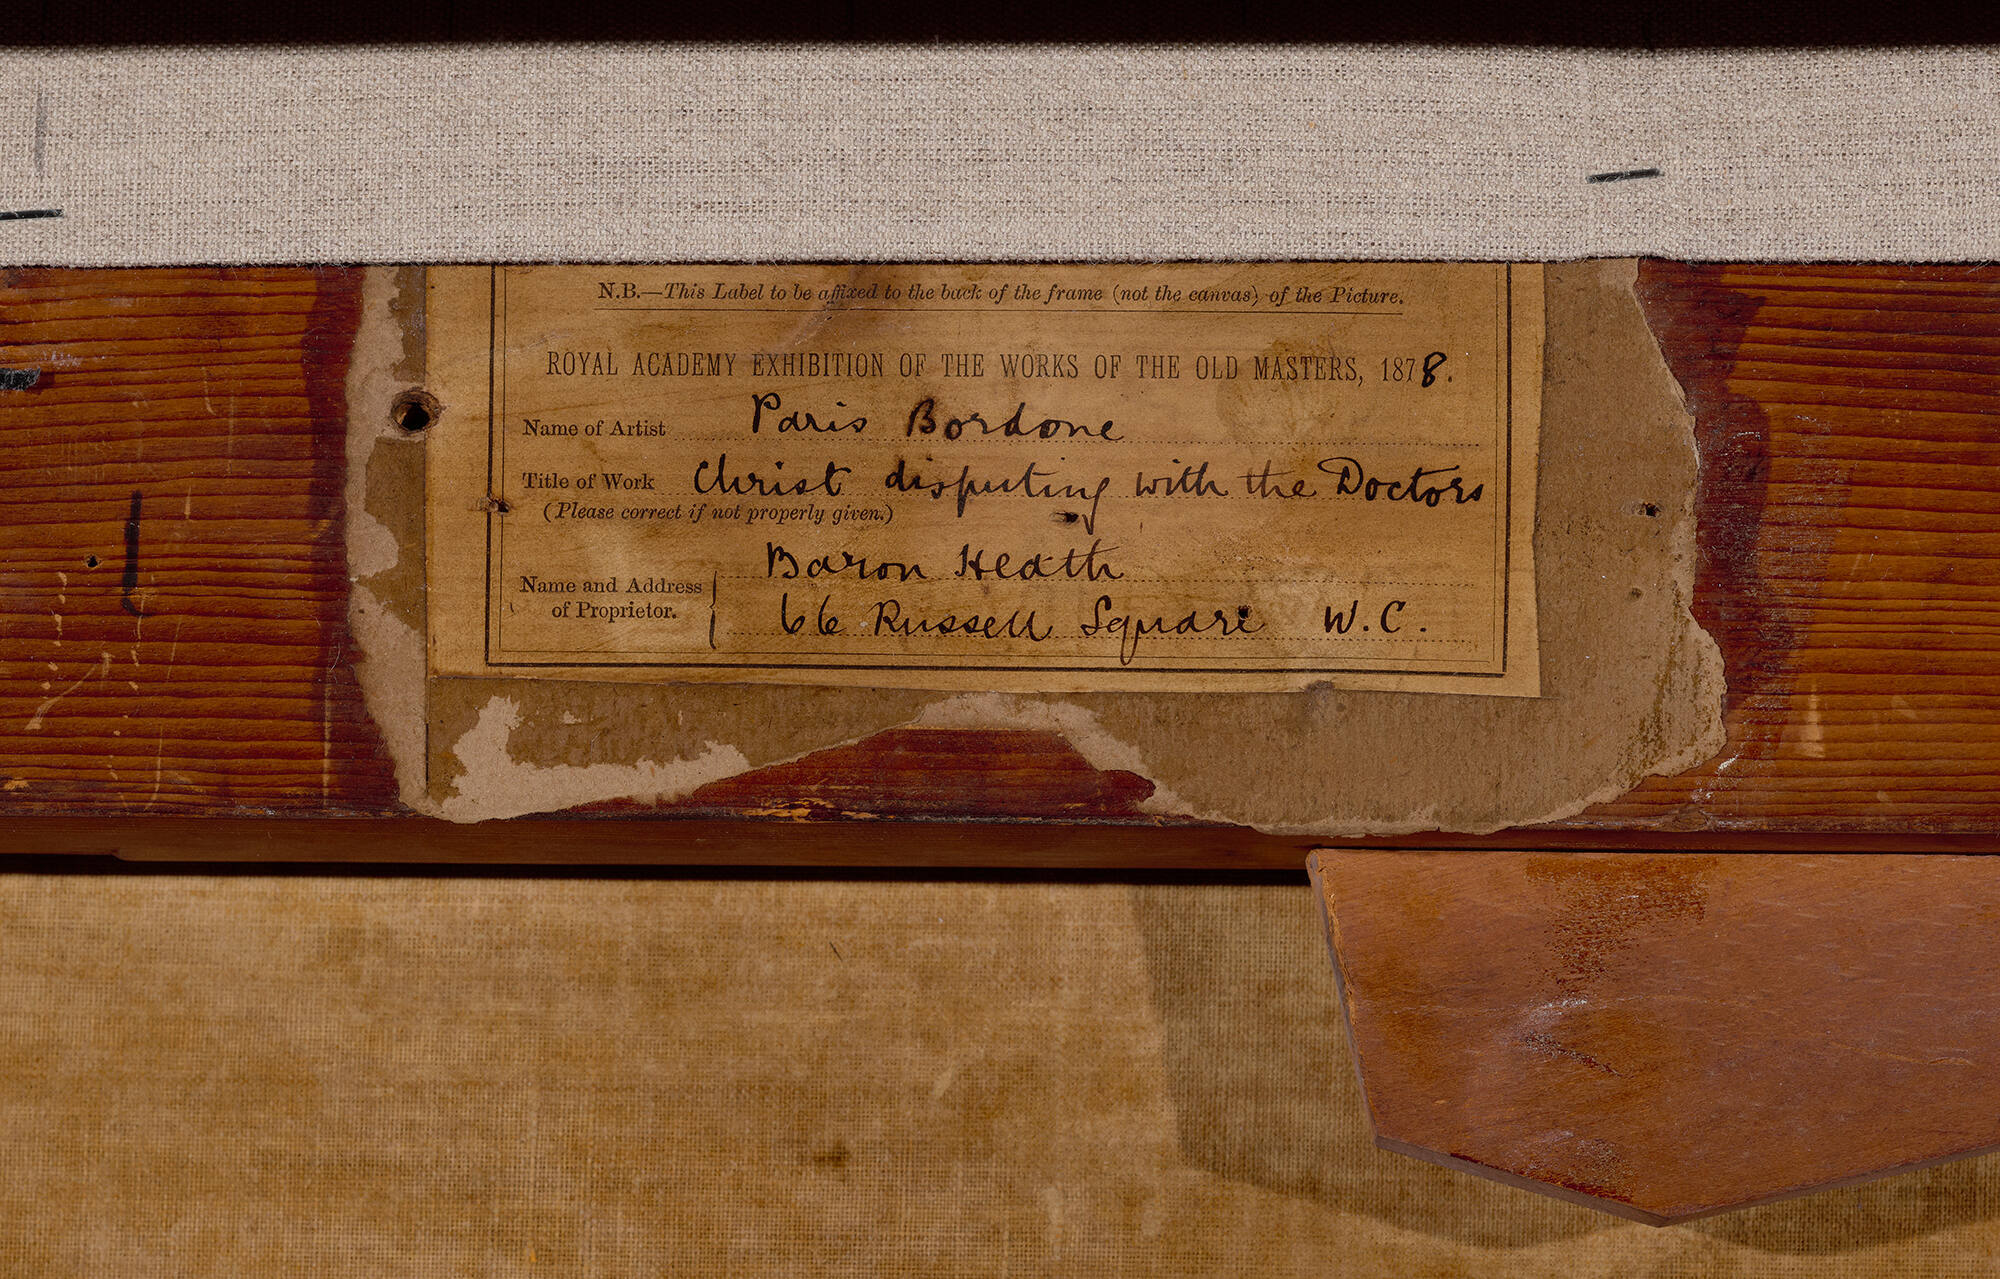 N.B.—This Label to be affixed to the back of the frame (not the canvas) of the Picture.
ROYAL ACADEMY EXHIBITION OF THE WORKS OF THE OLD MASTERS, 1878.
Name of Artist Paris Bordone
Title of Work Christ disputing with the Doctors
(Please correct if not properly given.)
Baron Heath
Name and Address
of Proprietor.
66 Russell Square W.C.